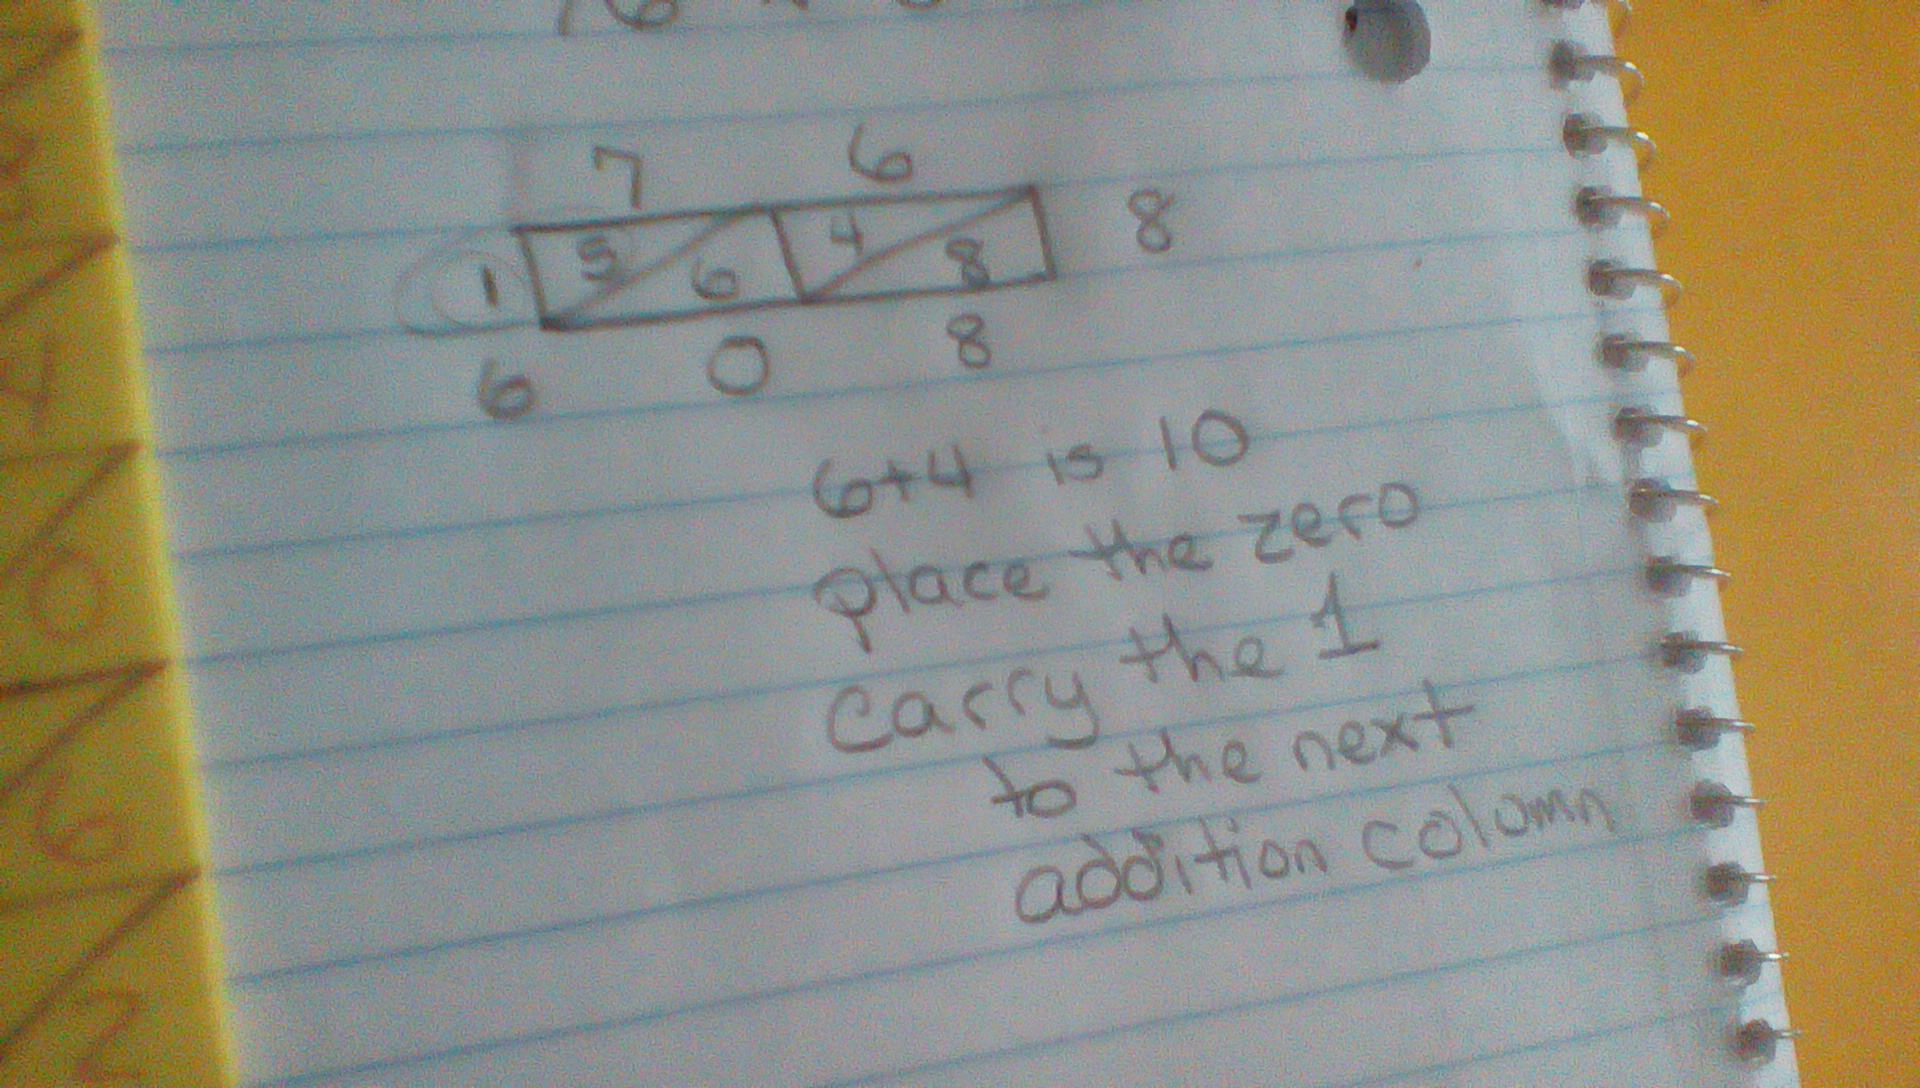 7 6
1 5 6 4 8 8
6 0 8
6+4 is 10
place the zero
carry the 1
to the next
addition column
4
0
6